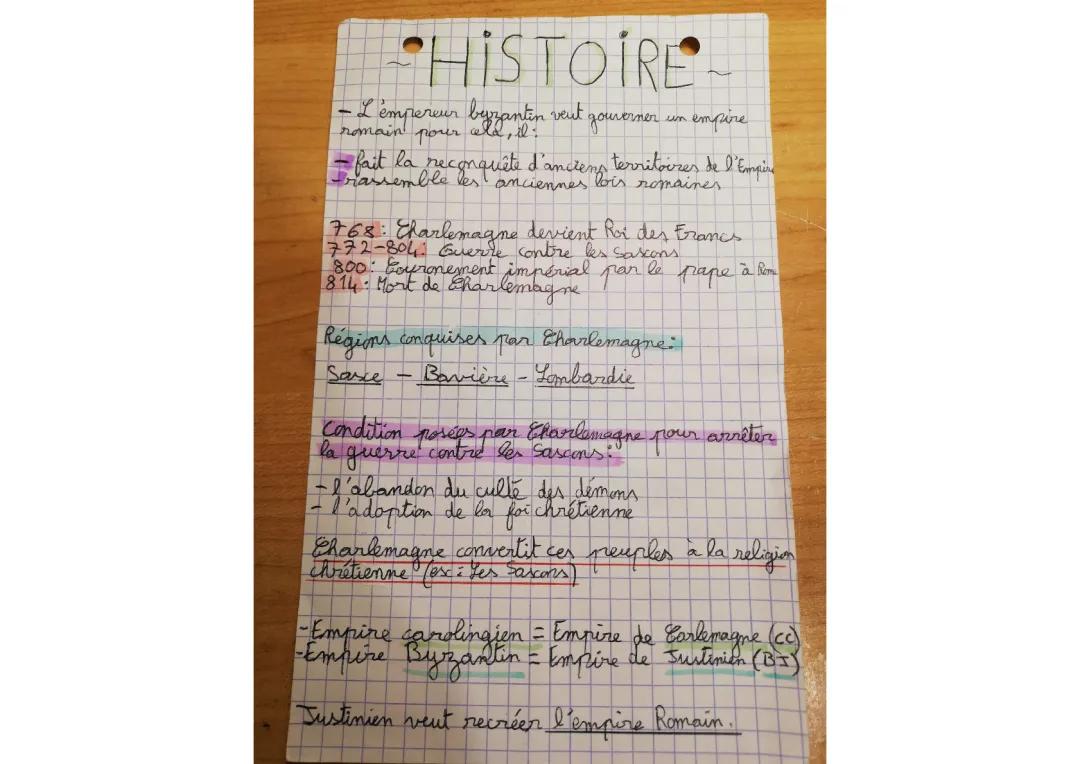 ~ HISTOIRE ~
- L'émpereur byzantin veut gouverner un empire
romain pour celà, il :
- fait la reconquête d'anciens territoires de l'Empire
- rassemble les anciennes lois romaines
768 : Charlemagne devient Roi des Francs
772-804 : Guerre contre les Saxons
800 : Couronement impérial par le pape à Rome
814 : Mort de Charlemagne
Régions conquises par Charlemagne :
Saxe - Bavière - Lombardie
Condition posées par Charlemagne pour arrêter
la guerre contre les Saxons :
- l'abandon du culte des démons
- l'adoption de la foi chrétienne
Charlemagne convertit ces peuples à la religion
chrétienne (ex : Les Saxons)
- Empire carolingien = Empire de Carlemagne (CC)
- Empire Byzantin = Empire de Justinien (BJ)
Justinien veut recréer l'empire Romain.